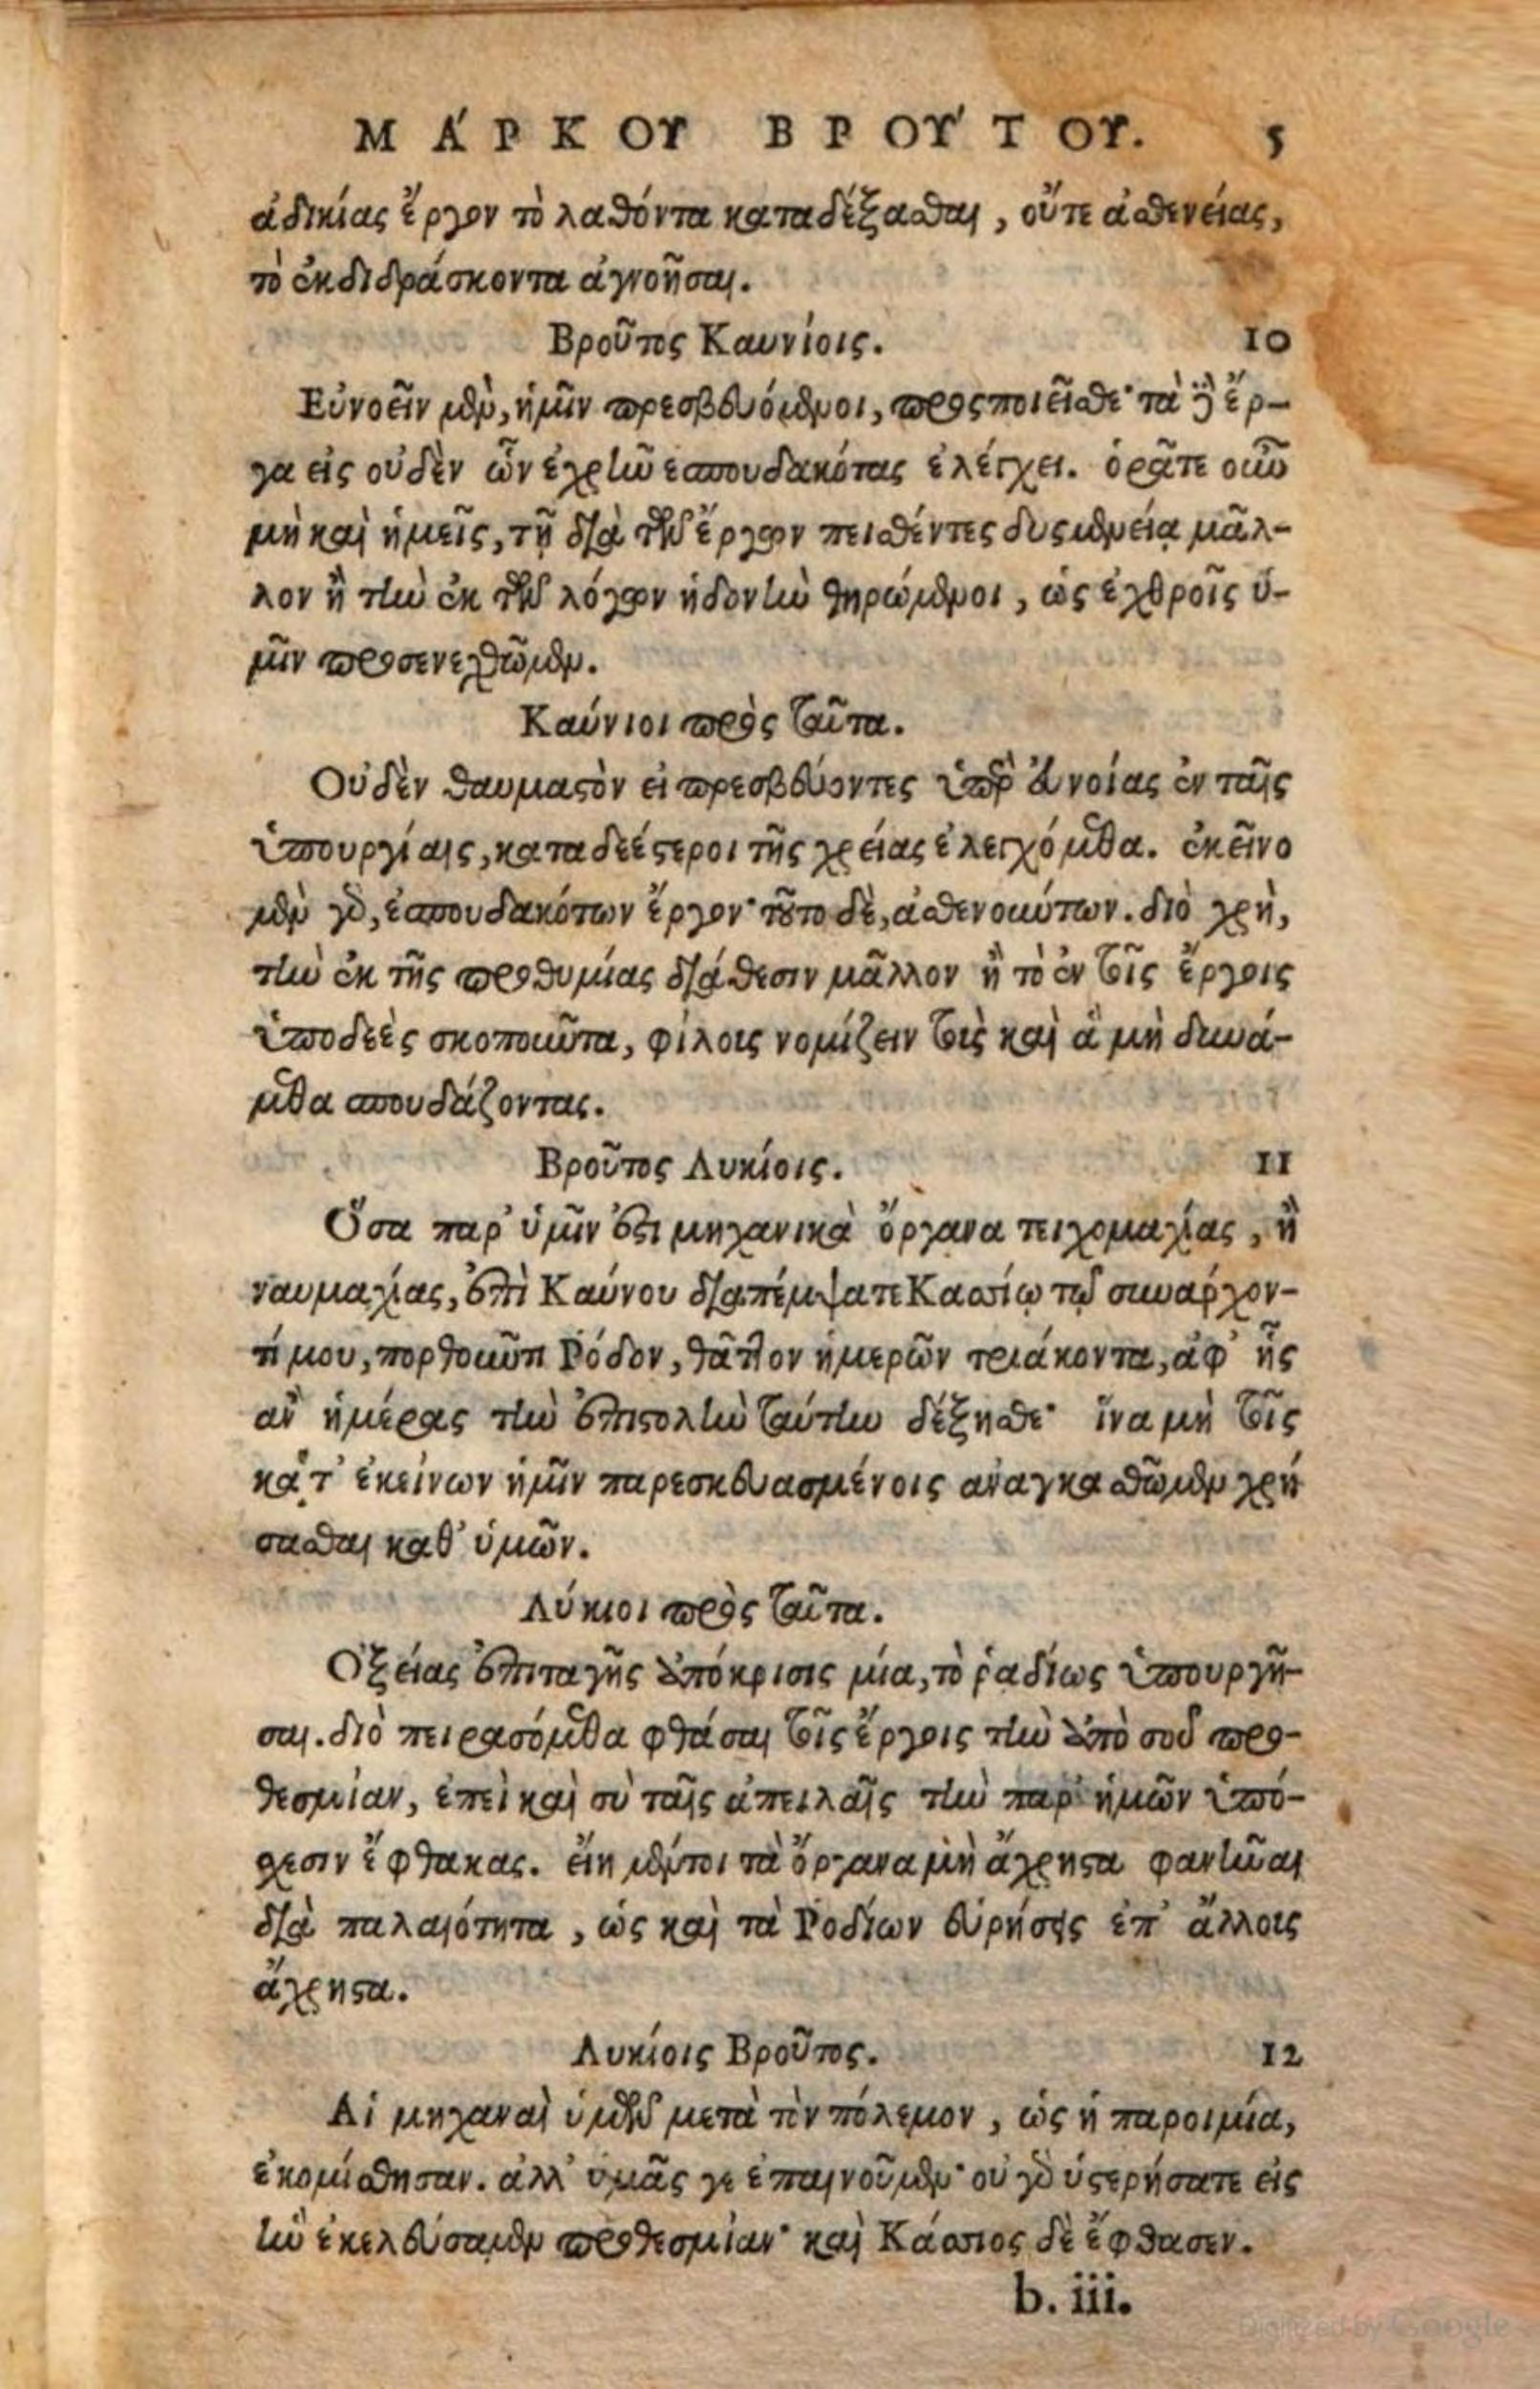 ΜΆΡΚΟΥ ΒΡΟΎΤΟΥ. 5
ἀδικίας ἔργον τὸ λαθόντα καταδέξασθαι, οὔτε ἀσθενείας,
τὸ ἐκδιδράσκοντα ἀγνοῆσαι.
Βροῦτος Καυνίοις. 10
Εὐνοεῖν μὲν, ἡμῖν πρεσβευόμενοι, προςποιεῖσθε· τὰ δὲ ἔρ-
γα εἰς οὐδὲν ὧν ἐχρῆν ἐσπουδακότας ἐλέγχει. ὁρᾶτε οὖν
μὴ καὶ ἡμεῖς, τῇ διὰ τῶν ἔργων πεισθέντες δυςμενείᾳ μᾶλ-
λον ἢ τὴν ἐκ τῶν λόγων ἡδονὴν θηρώμενοι, ὡς ἐχθροῖς ὑ-
μῖν προσενεχθῶμεν.
Καύνιοι πρὸς ταῦτα.
Οὐδὲν θαυμαστὸν εἰ πρεσβεύοντες ὑπὲρ εὐνοίας ἐν ταῖς
ὑπουργίαις, καταδεέστεροι τῆς χρείας ἐλεγχόμεθα. ἐκεῖνο
μὲν γὰρ, ἐσπουδακότων ἔργον· τοῦτο δὲ, ἀσθενούντων. διὸ χρὴ,
τὴν ἐκ τῆς προθυμίας διάθεσιν μᾶλλον ἢ τὸ ἐν τοῖς ἔργοις
ὑποδεὲς σκοποῦντα, φίλοις νομίζειν τοὶς καὶ ἃ μὴ δυνά-
μεθα σπουδάζοντας.
Βροῦτος Λυκίοις. 11
Ὅσα παρ' ὑμῖν ἐστι μηχανικὰ ὄργανα τειχομαχίας, ἢ
ναυμαχίας, ἐπὶ Καύνου διαπέμψατε Κασσίῳ τῷ συνάρχον-
τί μου, πορθοῦντι Ῥόδον, θᾶττον ἡμερῶν τριάκοντα, ἀφ' ἧς
ἂν ἡμέρας τὴν ἐπιστολὴν ταύτην δέξησθε· ἵνα μὴ τοῖς
κατ' ἐκείνων ἡμῖν παρεσκευασμένοις ἀναγκασθῶμεν χρή
σασθαι καθ' ὑμῶν.
Λύκιοι πρὸς ταῦτα.
Ὀξείας ἐπιταγῆς ἀπόκρισις μία, τὸ ῥαδίως ὑπουργῆ-
σαι. διὸ πειρασόμεθα φθάσαι τοῖς ἔργοις τὴν ἀπὸ σοῦ προ-
θεσμίαν, ἐπεὶ καὶ σὺ ταῖς ἀπειλαῖς τὴν παρ' ἡμῶν ὑπό-
χεσιν ἔφθακας. εἴη μέντοι τὰ ὄργανα μὴ ἄχρηστα φανῆναι
διὰ παλαιότητα, ὡς καὶ τὰ Ῥοδίων εὑρήσεις ἐπ' ἄλλοις
ἄχρηστα.
Λυκίοις Βροῦτος. 12
Αἱ μηχαναὶ ὑμῶν μετὰ τὸν πόλεμον, ὡς ἡ παροιμία,
ἐκομίσθησαν. ἀλλ' ὑμᾶς γε ἐπαινοῦμεν· οὐ γὰρ ὑστερήσατε εἰς
ἣν ἐκελεύσαμεν προθεσμίαν· καὶ Κάσσιος δὲ ἔφθασεν.
b. iii.
Digitized by Google